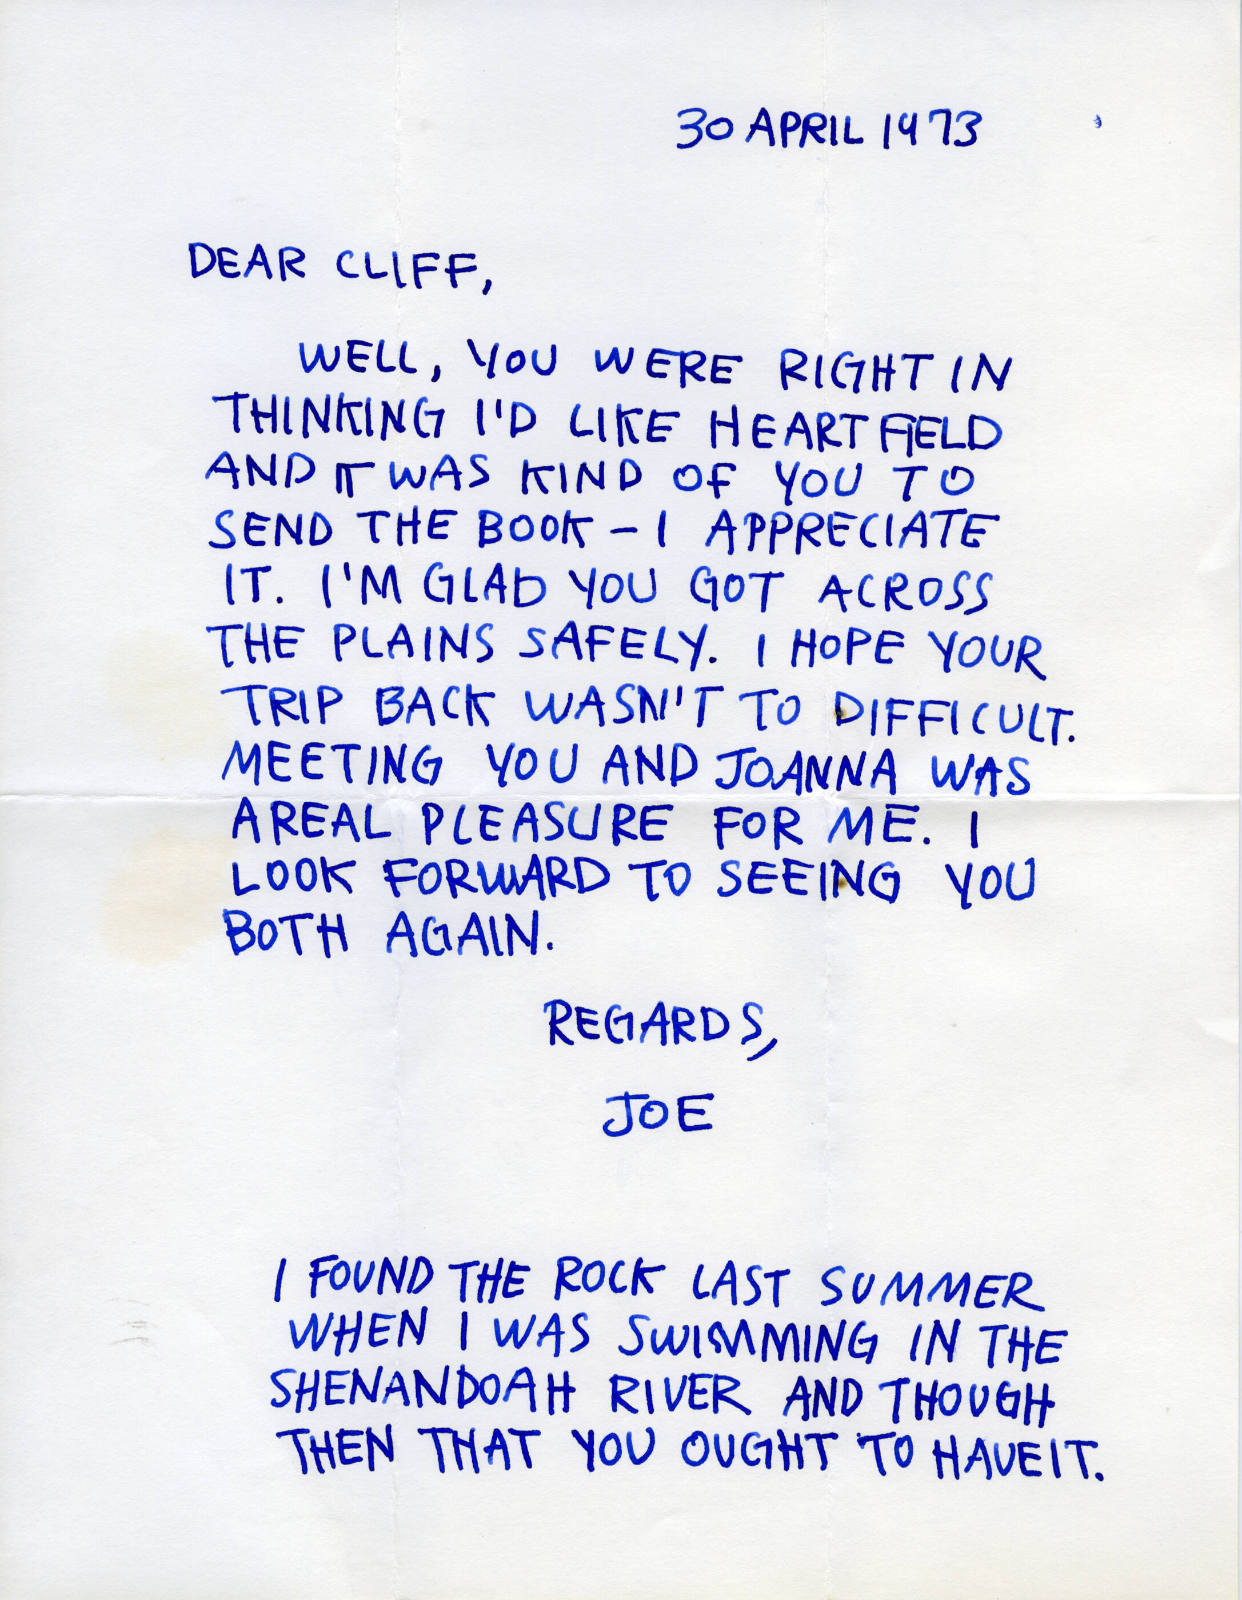 30 APRIL 1973
DEAR CLIFF,
WELL, YOU WERE RIGHT IN
THINKING I'D LIKE HEARTFIELD
AND IT WAS KIND OF YOU TO
SEND THE BOOK – I APPRECIATE
IT. I'M GLAD YOU GOT ACROSS
THE PLAINS SAFELY. I HOPE YOUR
TRIP BACK WASN'T TO DIFFICULT.
MEETING YOU AND JOANNA WAS
A REAL PLEASURE FOR ME. I
LOOK FORWARD TO SEEING YOU
BOTH AGAIN.
REGARDS,
JOE
I FOUND THE ROCK LAST SUMMER
WHEN I WAS SWIMMING IN THE
SHENANDOAH RIVER AND THOUGH
THEN THAT YOU OUGHT TO HAVE IT.